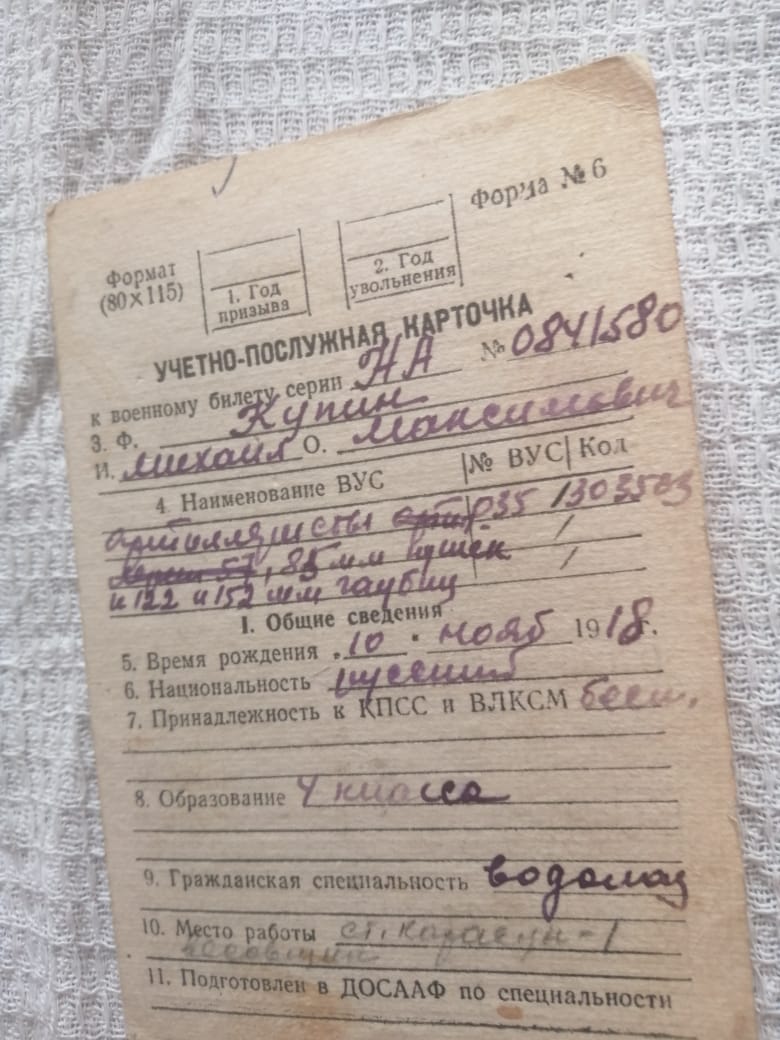 Форма № 6
Формат
(80×115)
1. Год
призыва
2. Год
увольнения
УЧЕТНО-ПОСЛУЖНАЯ КАРТОЧКА
к военному билету серии НА № 0841580
3. Ф. Купин
И. Михаил О. Максимович
4. Наименование ВУС № ВУС Код
артиллеристы 035 / 303503
, 85 мм пушек /
и 122 и 152 мм гаубиц /
I. Общие сведения
5. Время рождения „10" нояб 1918 г.
6. Национальность русский
7. Принадлежность к КПСС и ВЛКСМ бесп.
8. Образование 4 класса
9. Гражданская специальность водолаз
10. Место работы ст. -1
весовщик
11. Подготовлен в ДОСААФ по специальности